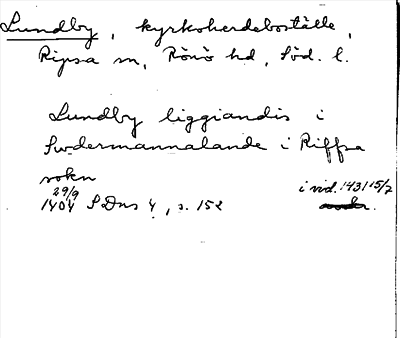 Lundby, kyrkoherdeboställe,
Ripsa sn, Rönö hd, Söd. l.
Lundby liggiandis i
Swdermannalande i Riffsa
sokn
29/9 1404 SDns 4, s. 152
i vid. 1431 15/7